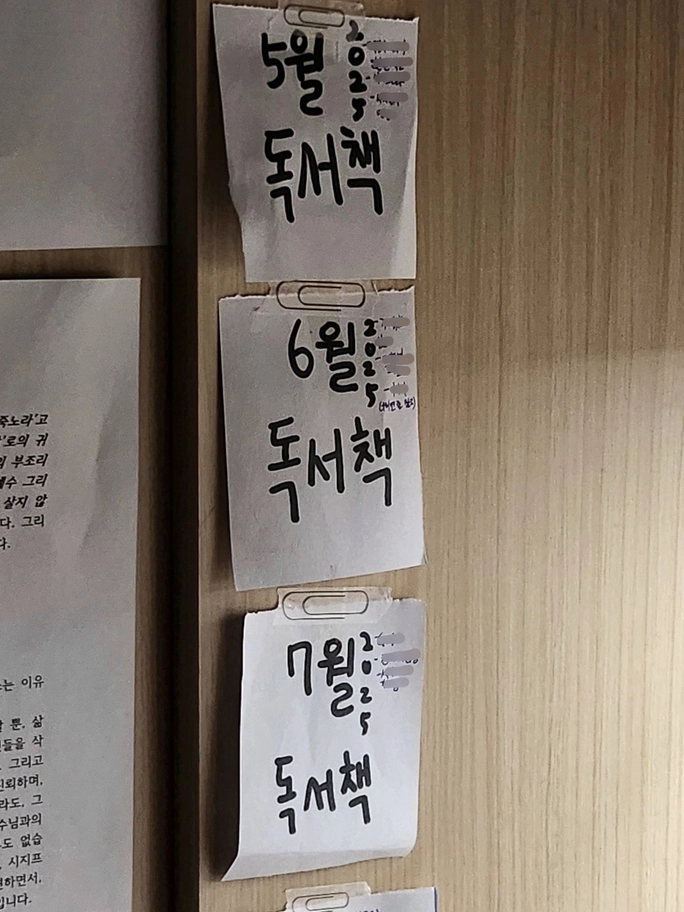 5월
2025
독서책
6월
2025
독서책
7월
2025
독서책
죽노라'고
'로의 귀
의 부조리
예수 그리
살지 않
다. 그리
다.
는 이유
뿐. 삶
들을 삭
그리고
뢰하며,
라도, 그
수님과의
도 없습
시지프
면하면서,
입니다.